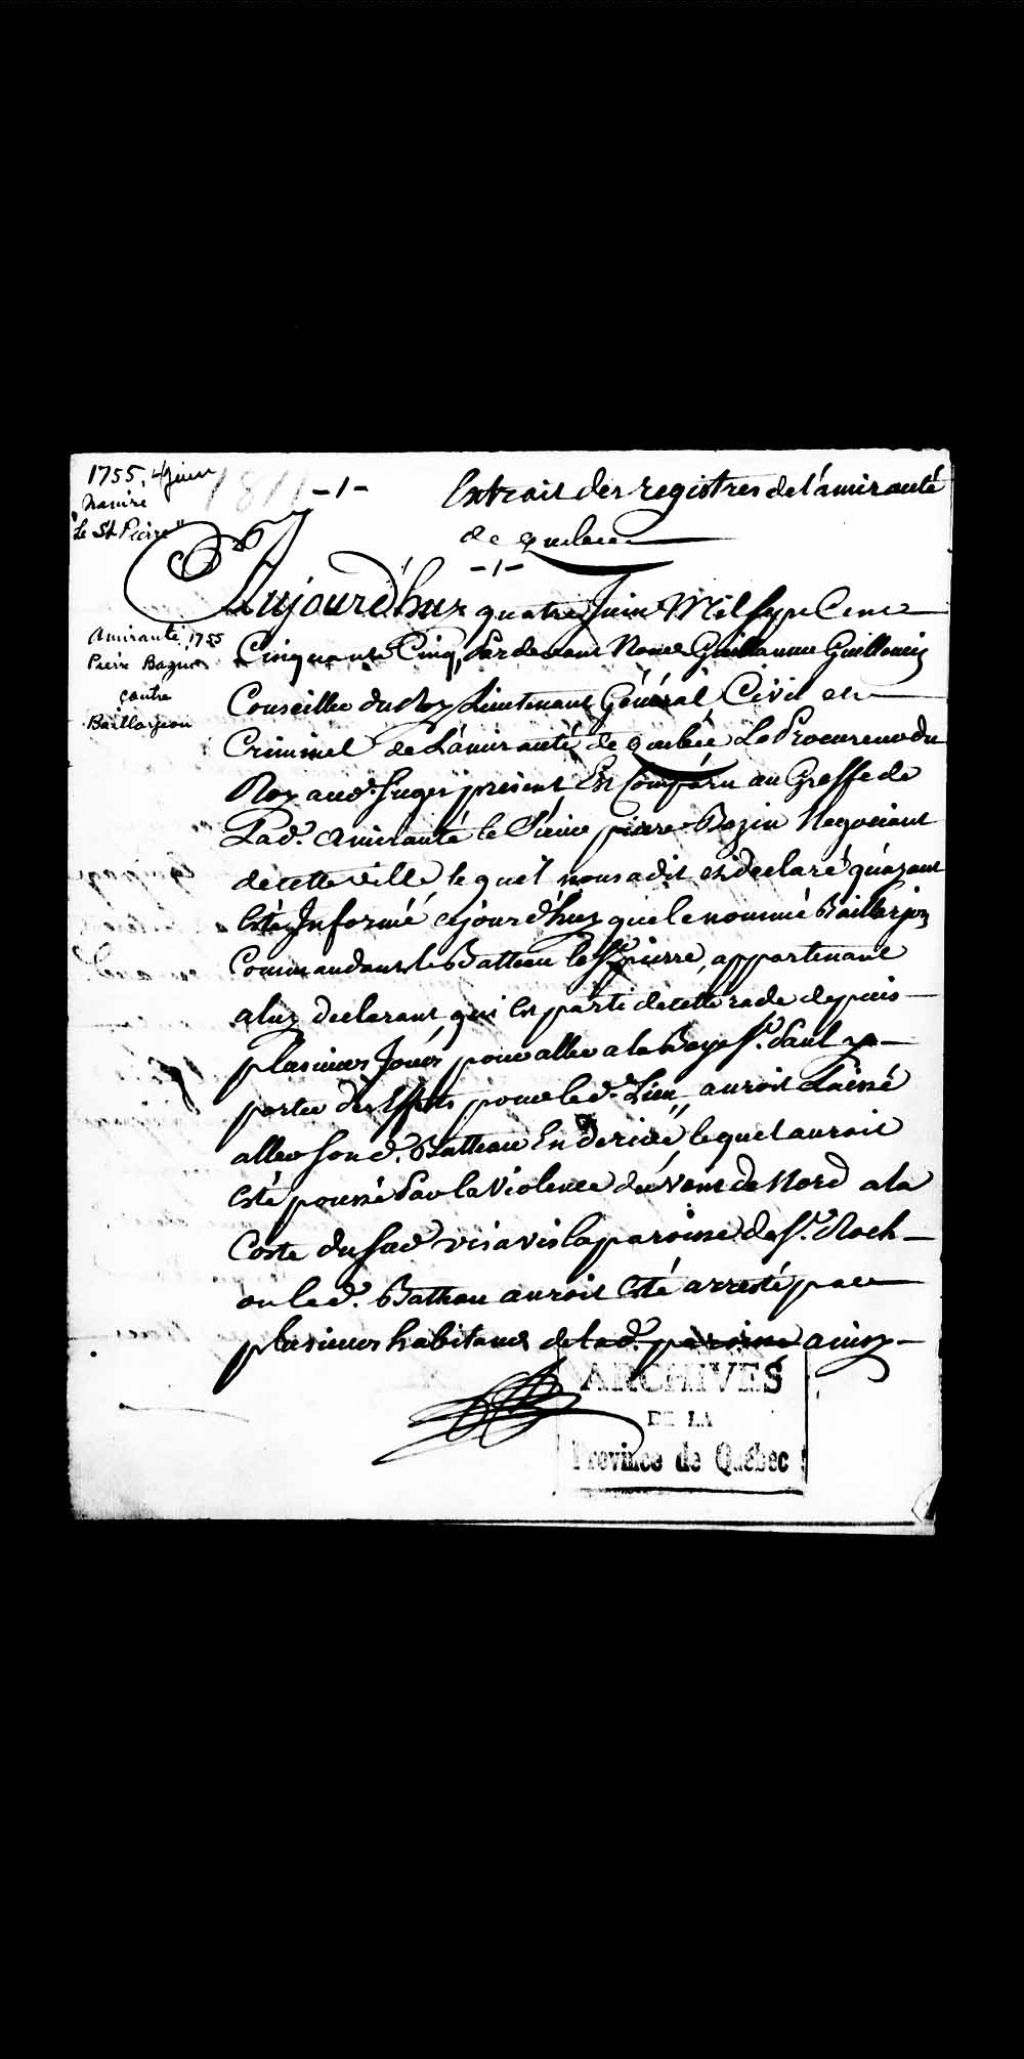 1755, 4 juin
Navire
"Le St Pierre"
-1-
Extrait des registres de l'amirauté
de quebec
-1-
Amirauté 1755
Pierre Bazin
contre
Baillargeon
Aujourd'huy quatre Juin Mil sept Cent
Cinquante Cinq, Pardevant Nous Guillaume Guillemin
Conseiller du Roy Lieutenant Général, Civil et
Criminel de L'amirauté de quebec Le Procureur du
Roy aud. Siege present, Est Comparu au Greffe de
Lad. amirauté le Sieur pierre Bazin Negociant
de cette ville lequel nous a dit et declaré qu'ayant
Esté Informé ajourd'huy que le nommé Baillarjon
Commandant le Batteau le St. pierre, appartenant
a luy declarant, qui est parti de cette rade depuis
plusieurs Jours, pour aller a la Baye St. Paul y
porter des Effets pour led. Lieu, auroit Laissé
aller son d. Batteau En derive, lequel auroit
Esté poussé Par la Violence du vent de Nord a la
Coste du Sud vis a vis la paroisse de St. Roch
ou led. Batteau auroit Esté arresté par
plusieurs habitans de lad. paroisse ainsy
ARCHIVES
DE LA
Province de Québec